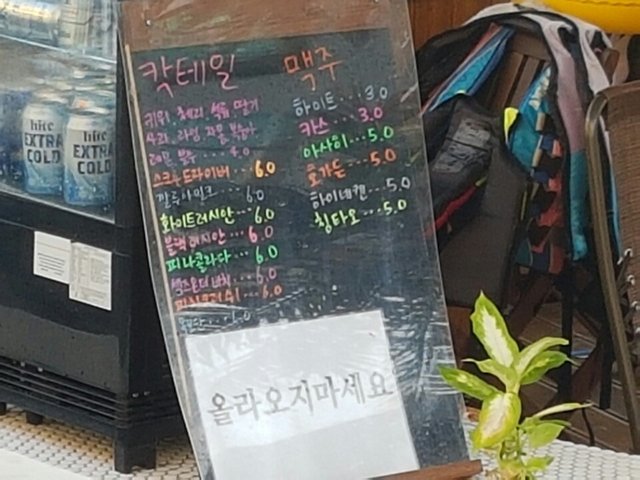 hite
EXTRA
COLD
hite
EXTRA
COLD
칵테일
키위 체리 청포도 딸기
사과 라임 자몽
레몬 ... 6.0
스크류드라이버 ... 6.0
깔루아밀크 ... 6.0
화이트러시안 ... 6.0
블랙러시안 ... 6.0
피나콜라다 ... 6.0
섹스온더비치 ... 6.0
6.0
맥주
하이트 ... 3.0
카스 ... 3.0
아사히 ... 5.0
호가든 ... 5.0
하이네켄 ... 5.0
칭타오 ... 5.0
올라오지마세요